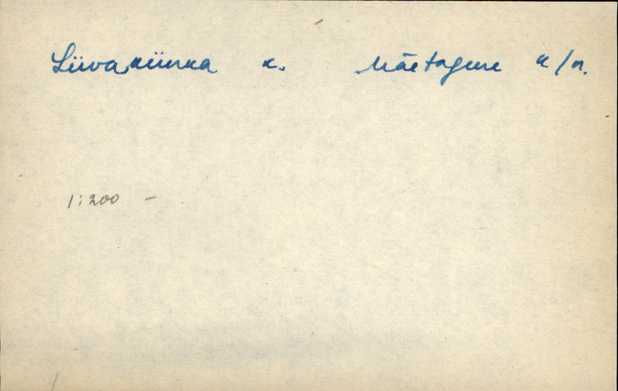 Liivakünka k. Mäetaguse k/n.
1:200 -